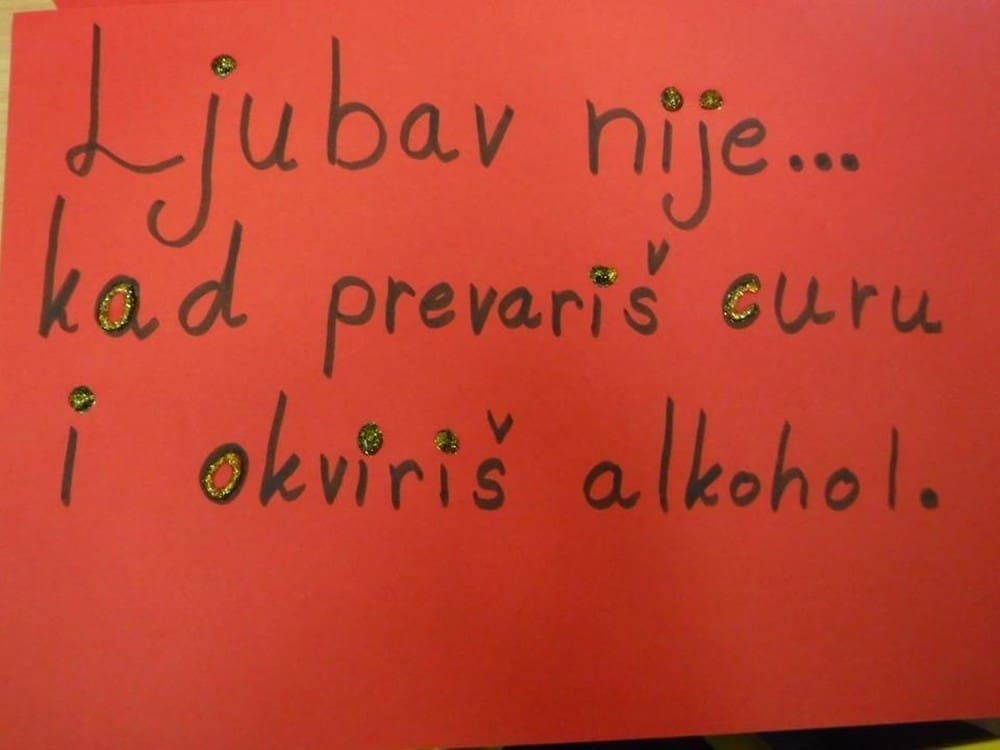 Ljubav nije...
kad prevariš curu
i okviriš alkohol.